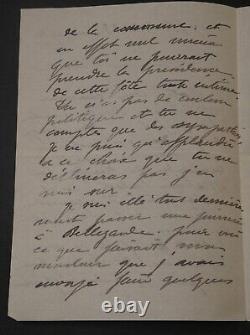 de la commune, et
en effet nul mieux
que toi ne pouvait
prendre la présidence
de cette fête toute intime
Tu n'as pas de couleur
politique et tu ne
comptes que des sympathies
Je ne puis qu'applaudir
à ce choix que tu ne
déclineras pas j'en
suis sûr.
Je suis allé tous derniers
passer une journée
à Bellegarde pour voir
ce que faisait mon
que j'avais
envoyé faire quelques
ebay